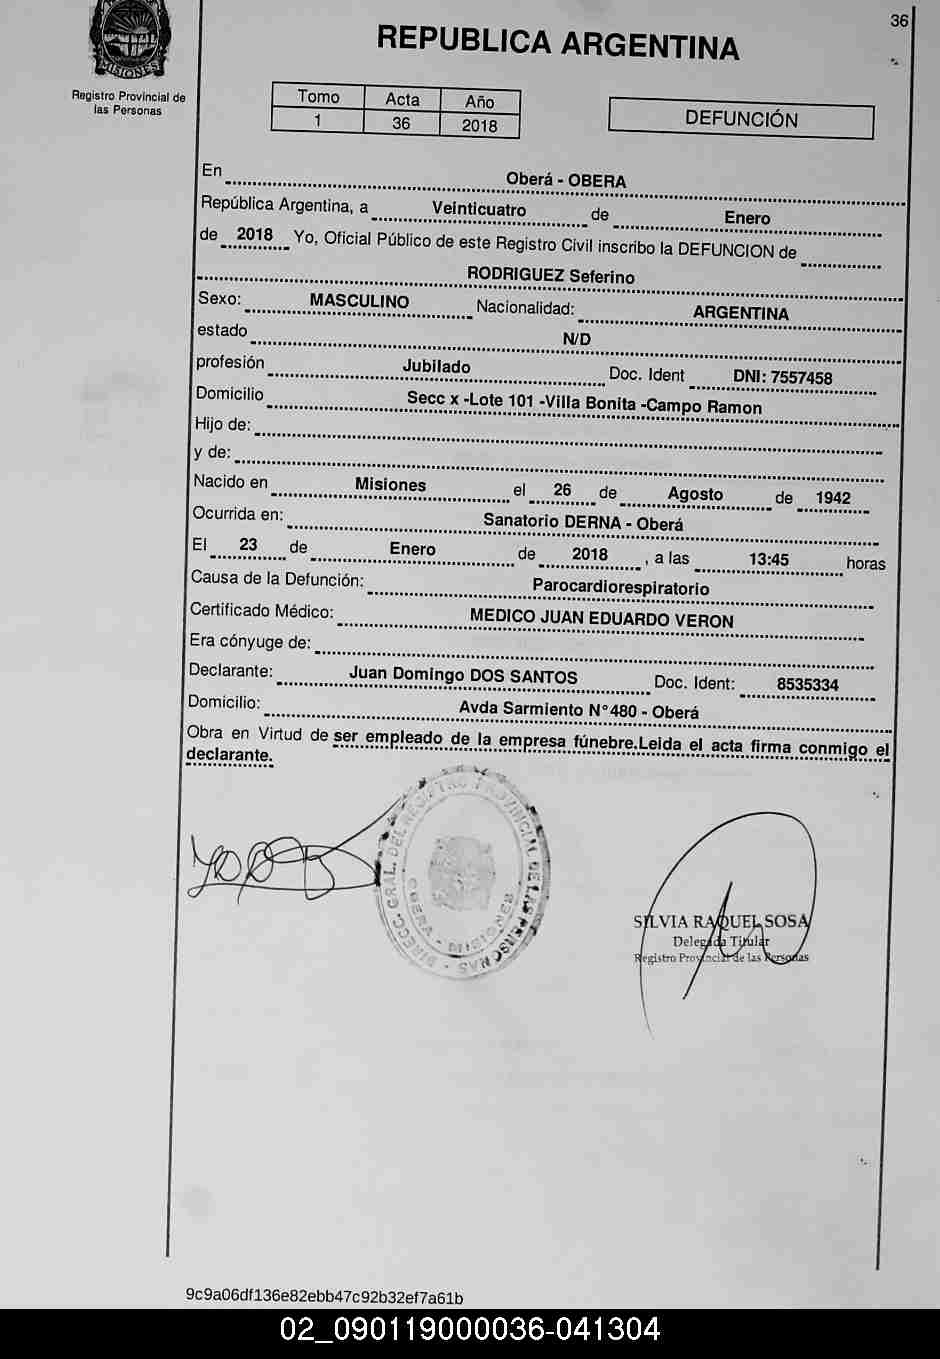 36
REPUBLICA ARGENTINA
MISIONES
Registro Provincial de
las Personas
Tomo Acta Año
1 36 2018
DEFUNCIÓN
En Oberá - OBERA
República Argentina, a Veinticuatro de Enero
de 2018 Yo, Oficial Público de este Registro Civil inscribo la DEFUNCION de
RODRIGUEZ Seferino
Sexo: MASCULINO Nacionalidad: ARGENTINA
estado N/D
profesión Jubilado Doc. Ident DNI: 7557458
Domicilio Secc x -Lote 101 -Villa Bonita -Campo Ramon
Hijo de:
y de:
Nacido en Misiones el 26 de Agosto de 1942
Ocurrida en: Sanatorio DERNA - Oberá
El 23 de Enero de 2018 , a las 13:45 horas
Causa de la Defunción: Parocardiorespiratorio
Certificado Médico: MEDICO JUAN EDUARDO VERON
Era cónyuge de:
Declarante: Juan Domingo DOS SANTOS Doc. Ident: 8535334
Domicilio: Avda Sarmiento N°480 - Oberá
Obra en Virtud de ser empleado de la empresa fúnebre.Leida el acta firma conmigo el
declarante.
DIRECC. GRAL. DEL REGISTRO PROVINCIAL DE LAS PERSONAS
OBERA - MISIONES
SILVIA RAQUEL SOSA
Delegada Titular
Registro Provincial de las Personas
9c9a06df136e82ebb47c92b32ef7a61b
02_090119000036-041304